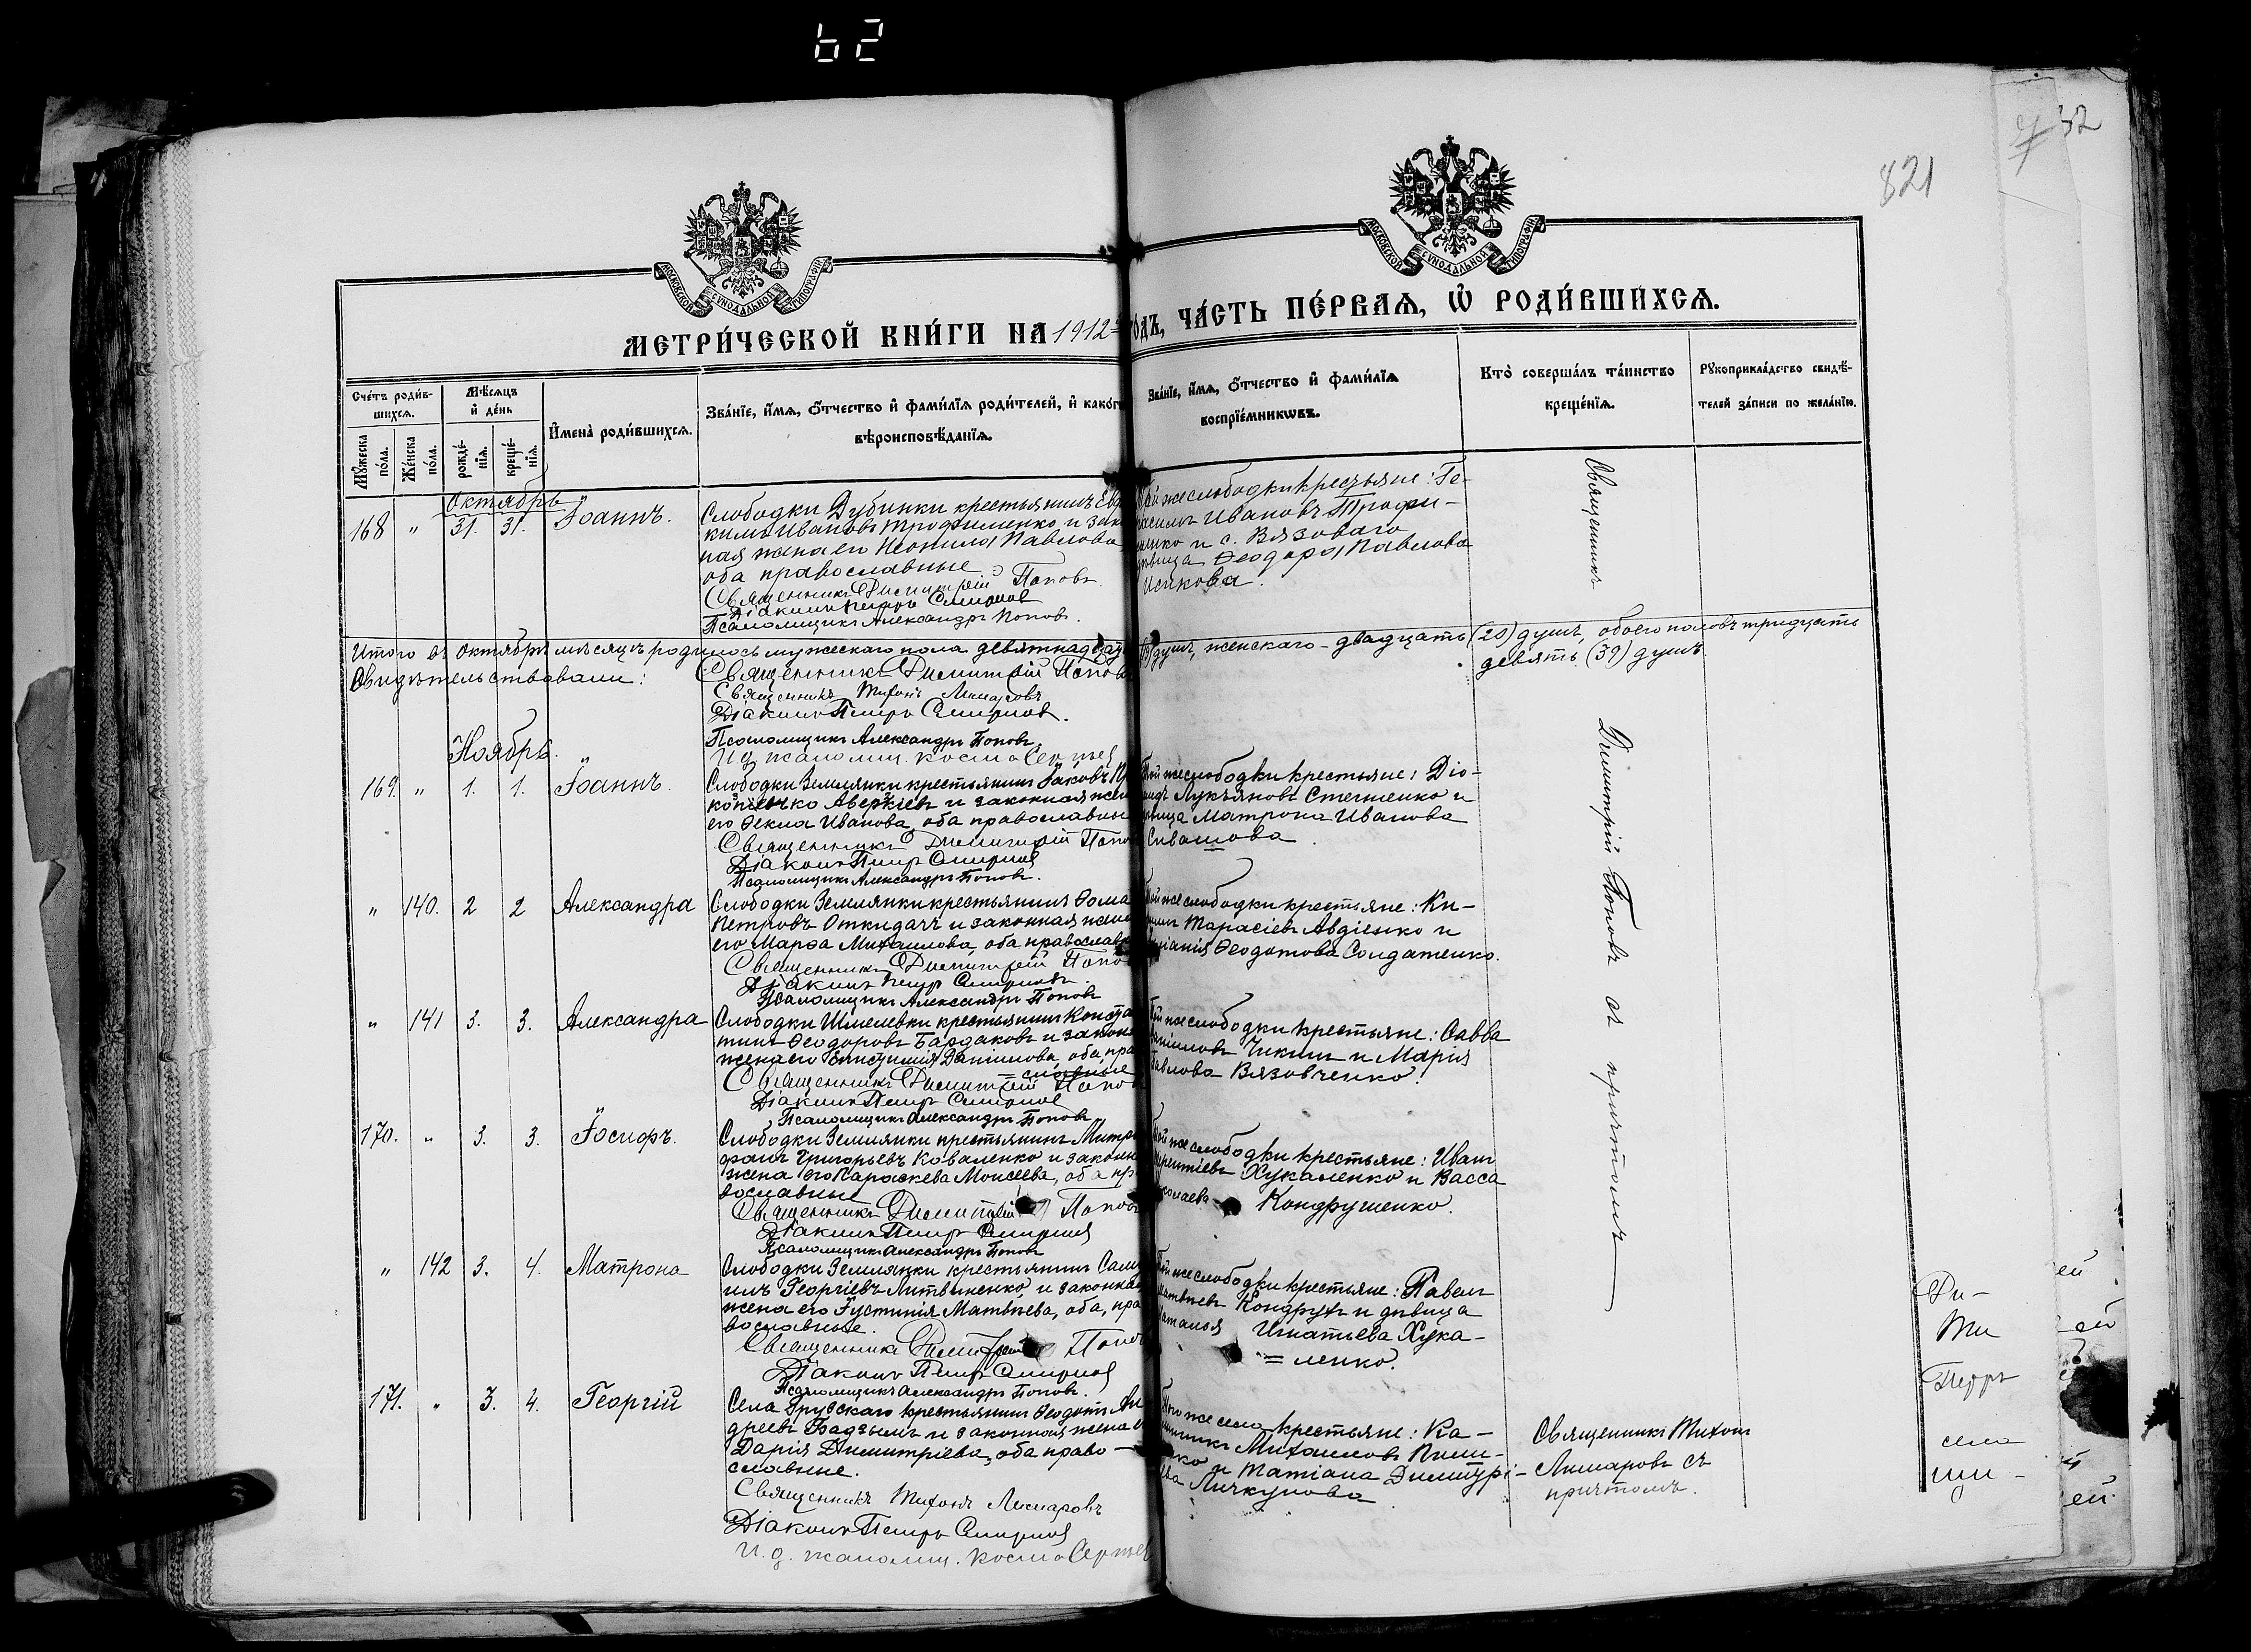 62
32
821
МОСКОВСКОЙ СУНОДАЛЬНОЙ ТИПОГРАФИИ
МОСКОВСКОЙ СУНОДАЛЬНОЙ ТИПОГРАФИИ
МЕТРИ́ЧЕСКОЙ КНИ́ГИ НА 1912 ГОДЪ, ЧА́СТЬ ПЕ́РВАЯ, Ѡ РОДИ́ВШИХСЯ.
Сче́тъ роди́вшихся.
Му́жеска по́ла.
Же́нска по́ла.
Мѣ́сяцъ и де́нь
рожде́нїя.
креще́нїя.
Имена̀ роди́вшихся.
Зва́нїе, и́мя, о́тчество и фами́лїя роди́телей, и како́гѡ
вѣроисповѣ́данїя.
Зва́нїе, и́мя, о́тчество и фами́лїя
воспрїе́мникѡвъ.
Кто̀ соверша́лъ та́инство
креще́нїя.
Рꙋкоприкла́дство свидѣ́-
телей за́писи по жела́нїю.
Октябрь
168 " 31. 31. Іоаннъ.
Слободки Дубинки крестьянинъ Евд
кимъ Ивановъ Трофименко и зак
ная жена его Неонила Павлова
оба православные
Священникъ Димитрій Поповъ
Діаконъ Петръ Смирновъ
Псаломщикъ Александръ Поповъ.
той же слободки крестьяне: Ге-
расимъ Ивановъ Трофи-
менко и с. Вязоваго
девица Ѳеодора Павлова
Исикова.
Священникъ
Итого въ Октябрѣ мѣсяцѣ родилось мужескаго пола девятнадцать
душъ, женскаго - двадцать (20) душъ, обоего половъ тридцать
девять (39) душъ
Свидѣтельствовали:
Священникъ Димитрій Поповъ
Священникъ Тихонъ Лимаровъ
Діаконъ Петръ Смирновъ.
Псаломщикъ Александръ Поповъ
И. д. псаломщ. Косма Сергѣев
Ноябрь.
169. " 1. 1. Іоаннъ.
Слободки Землянки крестьянинъ Іаковъ
Аверкіевъ и законная жена
его Ѳекла Иванова, оба православны
Священникъ Димитрій Попов
Діаконъ Петръ Смирновъ
Псаломщикъ Александръ Поповъ.
Той же слободки крестьяне: Діо-
мидъ Лукьяновъ Стешенко и
девица Матрона Иванова
Сивашова.
" 140. 2 2 Александра
Слободки Землянки крестьянинъ Ѳома
Петровъ Откидачъ и законная жена
его Марѳа Михаилова, оба православн
Священникъ Димитрій Попо
Діаконъ Петръ Смирновъ
Псаломщикъ Александръ Поповъ
Той же слободки крестьяне: Ки-
Тарасіевъ Авдіенко и
Ѳеодотова Солдатенко.
Димитрій Поповъ съ причтомъ
" 141 3. 3. Александра
Слободки Шмелевки крестьянинъ Конста
тинъ Ѳеодоровъ Бардаковъ и закон
жена его Епистимія Даніилова, оба, пра
=славные
Священникъ Димитрій Попов
Діаконъ Петръ Смирновъ
Псаломщикъ Александръ Поповъ
Той же слободки крестьяне: Савва
Даніиловъ Чикинъ и Марія
Павлова Вязовченко.
170. " 3. 3. Іосифъ.
Слободки Землянки крестьянинъ Митро
фанъ Григорьевъ Коваленко и законн
жена его Параскева Моисеева, оба пр
вославные
Священникъ Димитрій Поповъ
Діаконъ Петръ Смирновъ
Псаломщикъ Александръ Поповъ
Той же слободки крестьяне: Иванъ
Терентіевъ Хукаленко и Васса
Николаева Кондрушенко.
" 142 3. 4. Матрона
Слободки Землянки крестьянинъ Саму
илъ Георгіевъ Литвиненко, и законная
жена его Іустинія Матвѣева, оба, пра
вославные.
Священникъ Димитрій Попов
Діаконъ Петръ Смирновъ
Псаломщикъ Александръ Поповъ.
Той же слободки крестьяне: Павелъ
Матвѣевъ Кондрухъ и дѣвица
Наталья Игнатьева Хука-
=ленко.
171. " 3. 4. Георгій
Села крестьянинъ Ѳеодотъ Ан
дреевъ и законная жена е
Дарія Димитріева, оба право-
славные.
Священникъ Тихонъ Лимаровъ
Діаконъ Петръ Смирновъ
И. д. псаломщ. Косма Сергѣев
Того же села крестьяне: Ка-
Михаиловъ Пили-
и Татіана Димитрі-
ева Личкунова
Священникъ Тихонъ
Лимаровъ съ
причтомъ.
Ди-
Ти
Петръ
села
щи-
ей
ей
ей